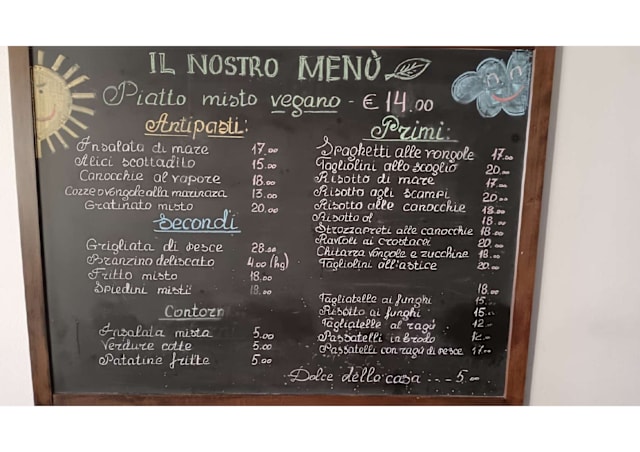 IL NOSTRO MENÙ
Piatto misto vegano - € 14.00
Antipasti:
Insalata di mare 17.00
Alici scottadito 15.00
Canocchie al vapore 18.00
Cozze o vongole alla marinara 13.00
Gratinato misto 20.00
Secondi
Grigliata di pesce 28.00
Branzino deliscato 4.00 (hg)
Fritto misto 18.00
Spiedini misti 18.00
Contorn
Insalata mista 5.00
Verdure cotte 5.00
Patatine fritte 5.00
Primi:
Spaghetti alle vongole 17.00
Tagliolini allo scoglio 20.00
Risotto di mare 17.00
Risotto agli scampi 20.00
Risotto alle canocchie 18.00
Risotto al 18.00
Strozzapreti alle canocchie 18.00
Ravioli ai crostacei 20.00
Chitarra vongole e zucchine 18.00
Tagliolini all'astice 20.00
18.00
Tagliatelle ai funghi 15.--
Risotto ai funghi 15.--
Tagliatelle al ragù 12.--
Passatelli in brodo 12.--
Passatelli con ragù di pesce 17.--
Dolce della casa --- 5.00